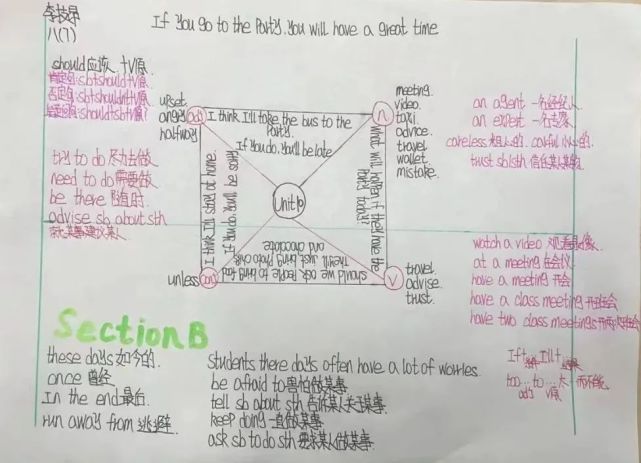 八(7)
If you go to the Party. You will have a great time
should应该. +V原.
肯定句:sb+should+V原
否定句:sb+shouldn't+V原
should+sb+V原?
upset.
angry
halfway
adj
n
I think I'll take the bus to the
Party.
If you do. You'll be late
meeting.
video.
taxi.
advice.
travel
wallet.
mistake.
an agent 一名经纪人.
an expert 一名专家
careless 粗心的.
trust sb/sth 信任某人某物
try to do 尽力去做.
need to do 需要做.
be there 随时.
advise sb about sth
I think I'll stay at home.
If you do. You'll be sorry
Unit 10
What will happen if they have the
Party today?
Should we ask People to bring food
They'll just bring Photo chips
and chocolate
unless
conj
V
travel.
advise.
trust.
watch a video 观看录像.
at a meeting 在会议
have a meeting 开会
have a class meeting 开班会
have two class meetings 开两次班会
Section B
these days 如今的.
once 曾经
In the end.最后.
run away from 逃避.
students there days often have a lot of worries.
be afraid to 害怕做某事
tell sb about sth 告诉某人关于某事.
keep doing 一直做某事
ask sb to do sth 要求某人做某事.
too...to... 太...而不能.
adj V原